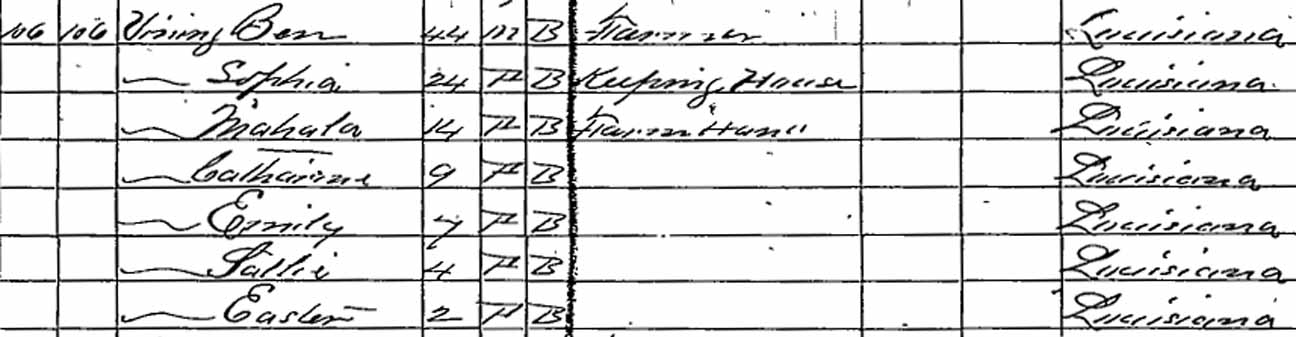 106 106 Vining Ben 44 M B Farmer Louisiana
— Sophia 24 F B Keeping House Louisiana
— Mahala 14 F B Farm Hand Louisiana
— Catharine 9 F B Louisiana
— Emily 7 F B Louisiana
— Sallie 4 F B Louisiana
— Easter 2 F B Louisiana